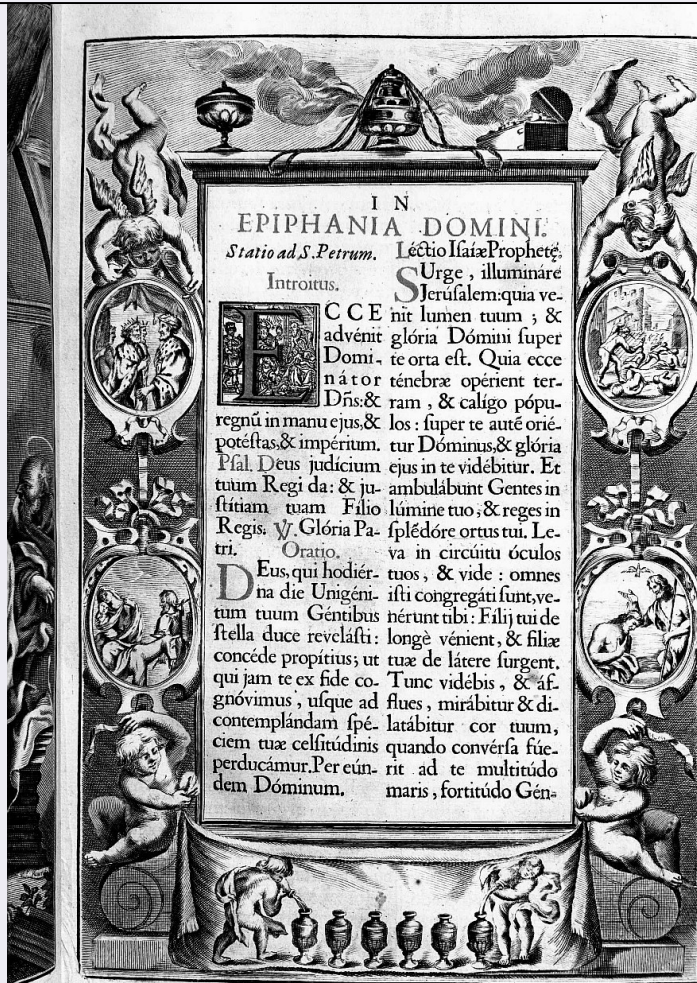 IN
EPIPHANIA DOMINI.
Statio ad S. Petrum.
Introitus.
ECCE
advénit
Domi-
nátor
Dn̄s:&
regnū in manu ejus,&
potéstas,& impérium.
Psal. Deus judícium
tuum Regi da: & ju-
stítiam tuam Fílio
Regis. ℣. Glória Pa-
tri.
Oratio.
DEus, qui hodiér-
na die Unigéni-
tum tuum Géntibus
stella duce revelásti:
concéde propítius; ut
qui jam te ex fide co-
gnóvimus, usque ad
contemplándam spé-
ciem tuæ celsitúdinis
perducámur. Per eún-
dem Dóminum.
Léctio Isaíæ Prophetę.
SUrge, illumináre
Jerúsalem: quia ve-
nit lumen tuum; &
glória Dómini super
te orta est. Quia ecce
ténebræ opérient ter-
ram, & calígo pópu-
los: super te autē orié-
tur Dóminus,& glória
ejus in te vidébitur. Et
ambulábunt Gentes in
lúmine tuo, & reges in
splēdóre ortus tui. Le-
va in circúitu óculos
tuos, & vide: omnes
isti congregáti sunt, ve-
nérunt tibi: Fílij tui de
longè vénient, & filiæ
tuæ de látere surgent.
Tunc vidébis, & áf-
flues, mirábitur & di-
latábitur cor tuum,
quando convérsa fúe-
rit ad te multitúdo
maris, fortitúdo Gén-